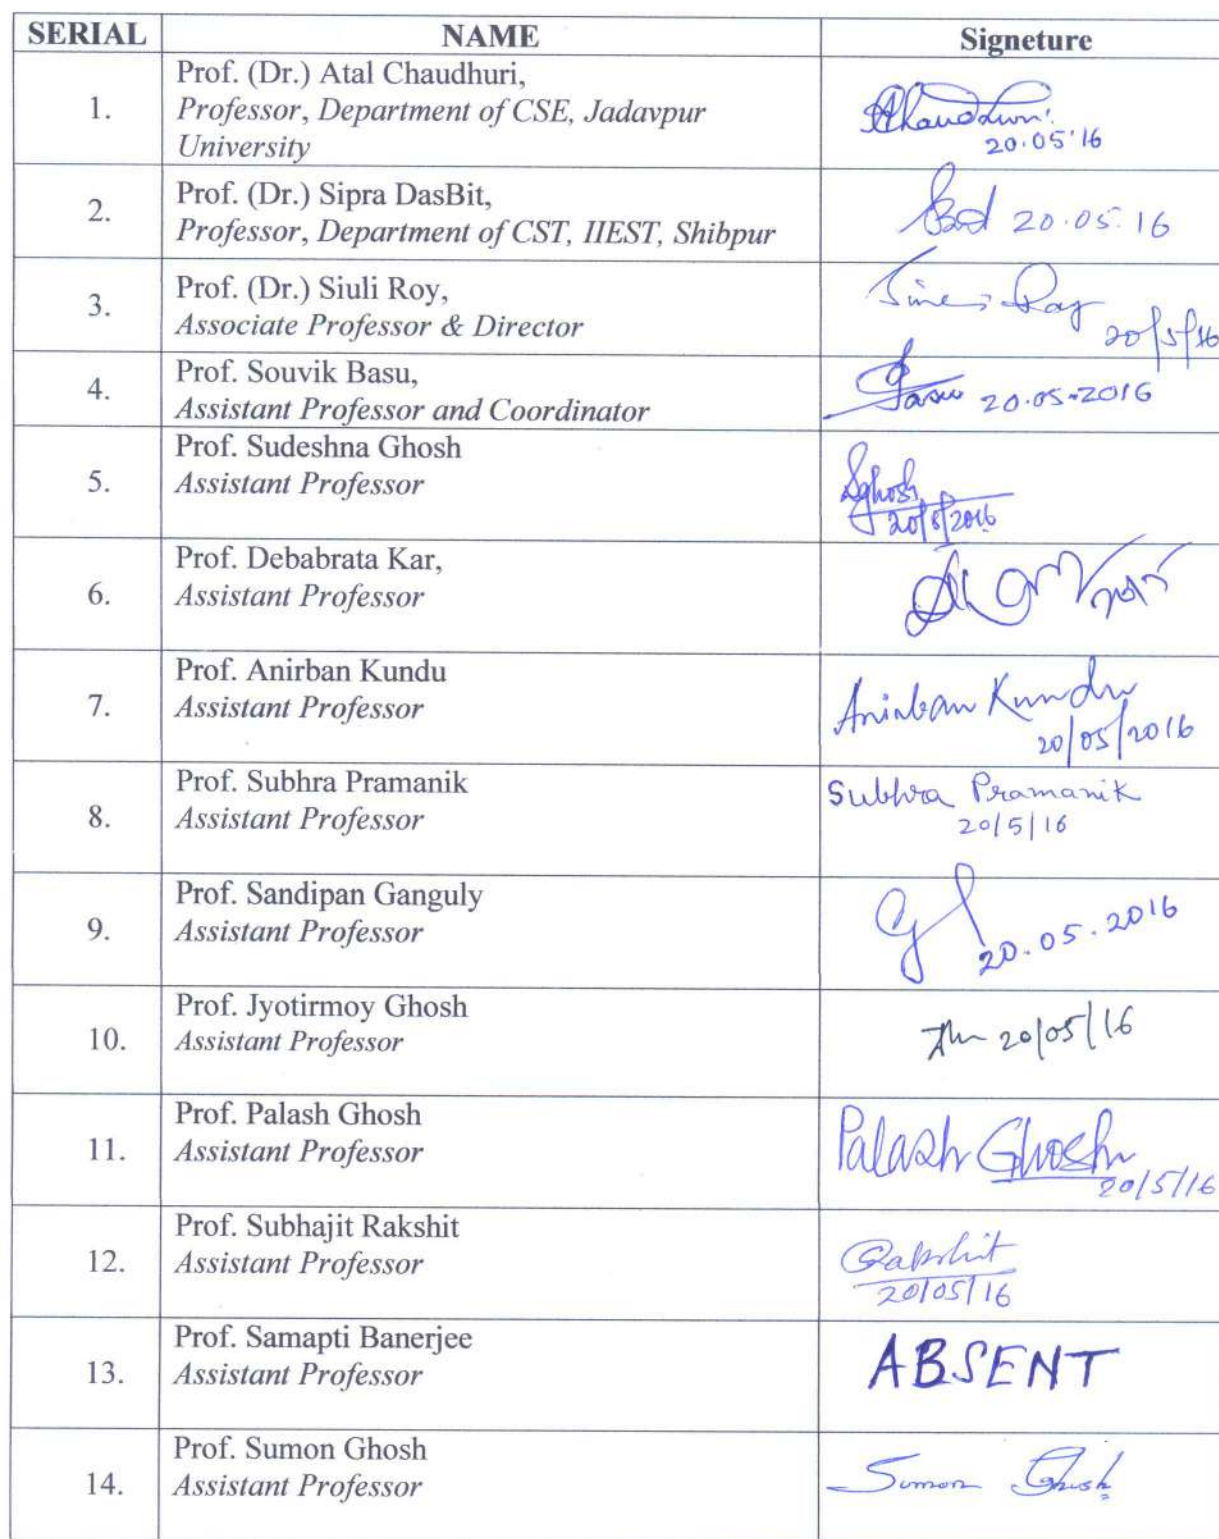 SERIAL NAME Signeture
1. Prof. (Dr.) Atal Chaudhuri,
Professor, Department of CSE, Jadavpur
University
AChaudhuri
20.05.16
2. Prof. (Dr.) Sipra DasBit,
Professor, Department of CST, IIEST, Shibpur
20.05.16
3. Prof. (Dr.) Siuli Roy,
Associate Professor & Director
Roy
20/5/16
4. Prof. Souvik Basu,
Assistant Professor and Coordinator
Basu 20.05.2016
5. Prof. Sudeshna Ghosh
Assistant Professor
SGhosh
20/5/2016
6. Prof. Debabrata Kar,
Assistant Professor
7. Prof. Anirban Kundu
Assistant Professor
Anirban Kundu
20/05/2016
8. Prof. Subhra Pramanik
Assistant Professor
Subhra Pramanik
20/5/16
9. Prof. Sandipan Ganguly
Assistant Professor
20.05.2016
10. Prof. Jyotirmoy Ghosh
Assistant Professor
20/05/16
11. Prof. Palash Ghosh
Assistant Professor
Palash Ghosh
20/5/16
12. Prof. Subhajit Rakshit
Assistant Professor
Rakshit
20/05/16
13. Prof. Samapti Banerjee
Assistant Professor
ABSENT
14. Prof. Sumon Ghosh
Assistant Professor
Sumon Ghosh